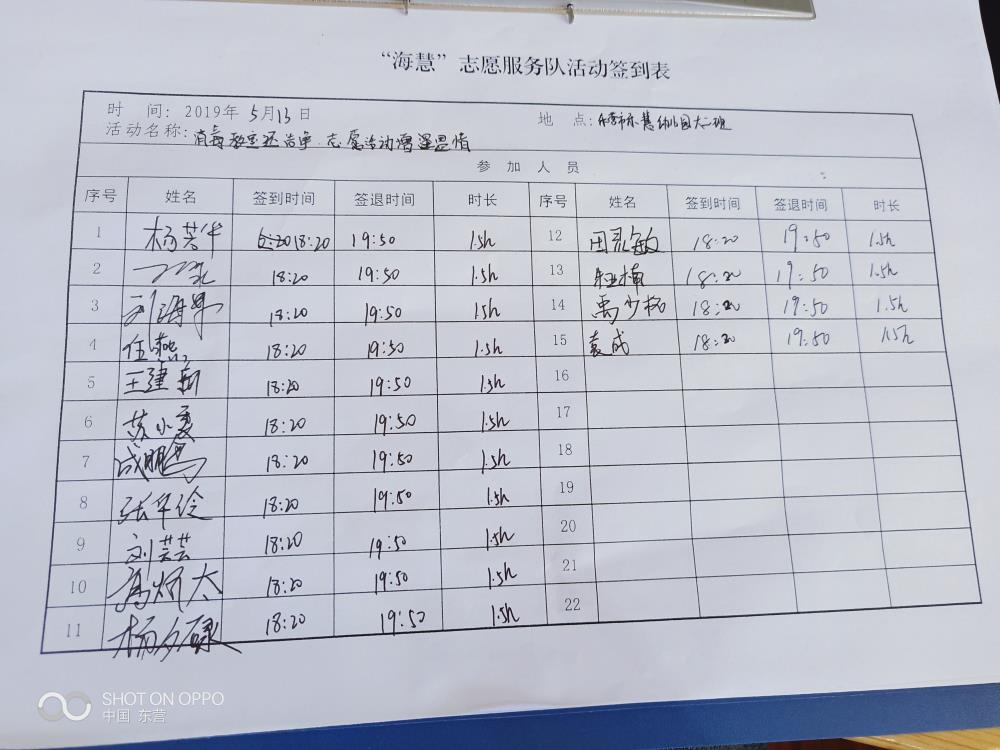 “海慧”志愿服务队活动签到表
时 间: 2019年 5月13日 地 点:
活动名称: 消毒教室还洁净·志愿活动增温情
参 加 人 员
序号 姓名 签到时间 签退时间 时长 序号 姓名 签到时间 签退时间 时长
1 杨芳华 18:20 19:50 1.5h 12 田 敏 18:20 19:50 1.5h
2 18:20 19:50 1.5h 13 楠 18:20 19:50 1.5h
3 刘海 18:20 19:50 1.5h 14 禹少杨 18:20 19:50 1.5h
4 任燕 18:20 19:50 1.5h 15 袁成 18:20 19:50 1.5h
5 王建新 18:20 19:50 1.5h 16
6 苏小夏 18:20 19:50 1.5h 17
7 成鹏 18:20 19:50 1.5h 18
8 张华伦 18:20 19:50 1.5h 19
9 刘芸芸 18:20 19:50 1.5h 20
10 太 18:20 19:50 1.5h 21
11 杨 18:20 19:50 1.5h 22
SHOT ON OPPO
中国 东营